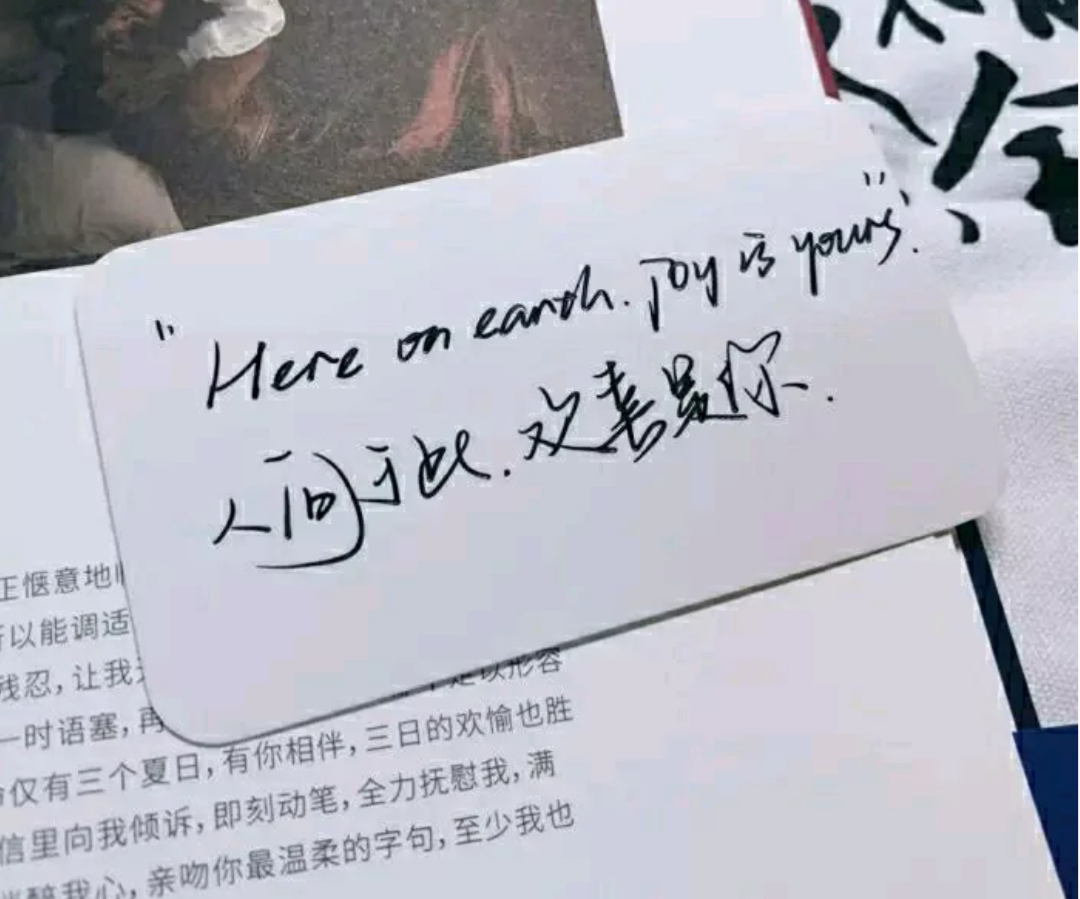 "Here on earth. joy is yours".
人间于此.欢喜是你.
正惬意地
以能调适
残忍,让我
足以形容
一时语塞,再
仅有三个夏日,有你相伴,三日的欢愉也胜
信里向我倾诉,即刻动笔,全力抚慰我,满
醉我心,亲吻你最温柔的字句,至少我也